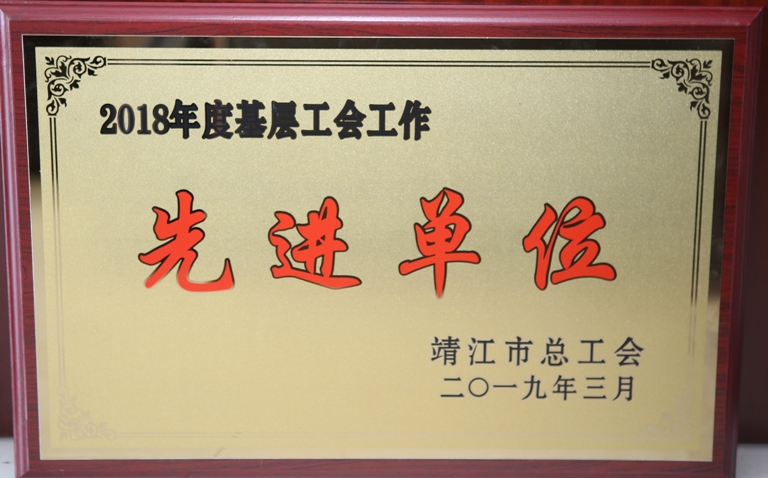 2018年度基层工会工作
先进单位
靖江市总工会
二〇一九年三月